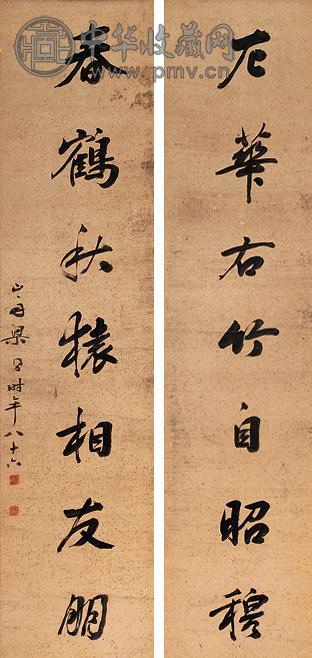 中华收藏网
www.pmv.cn
左華右竹自昭穆
春鶴秋猿相友朋
山舟梁同書時年八十六